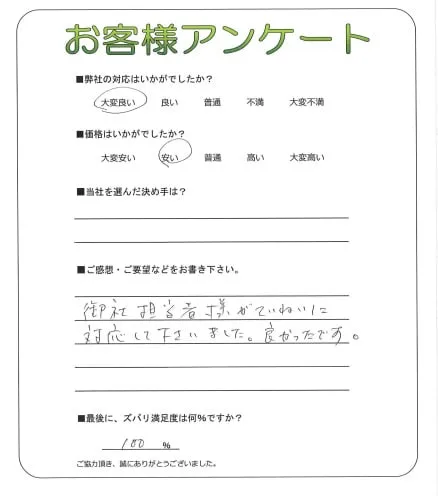 お客様アンケート
■弊社の対応はいかがでしたか？
大変良い 良い 普通 不満 大変不満
■価格はいかがでしたか？
大変安い 安い 普通 高い 大変高い
■当社を選んだ決め手は？
■ご感想・ご要望などをお書き下さい。
御社担当者様がていねいに
対応して下さいました。良かったです。
■最後に、ズバリ満足度は何%ですか？
100 %
ご協力頂き、誠にありがとうございました。